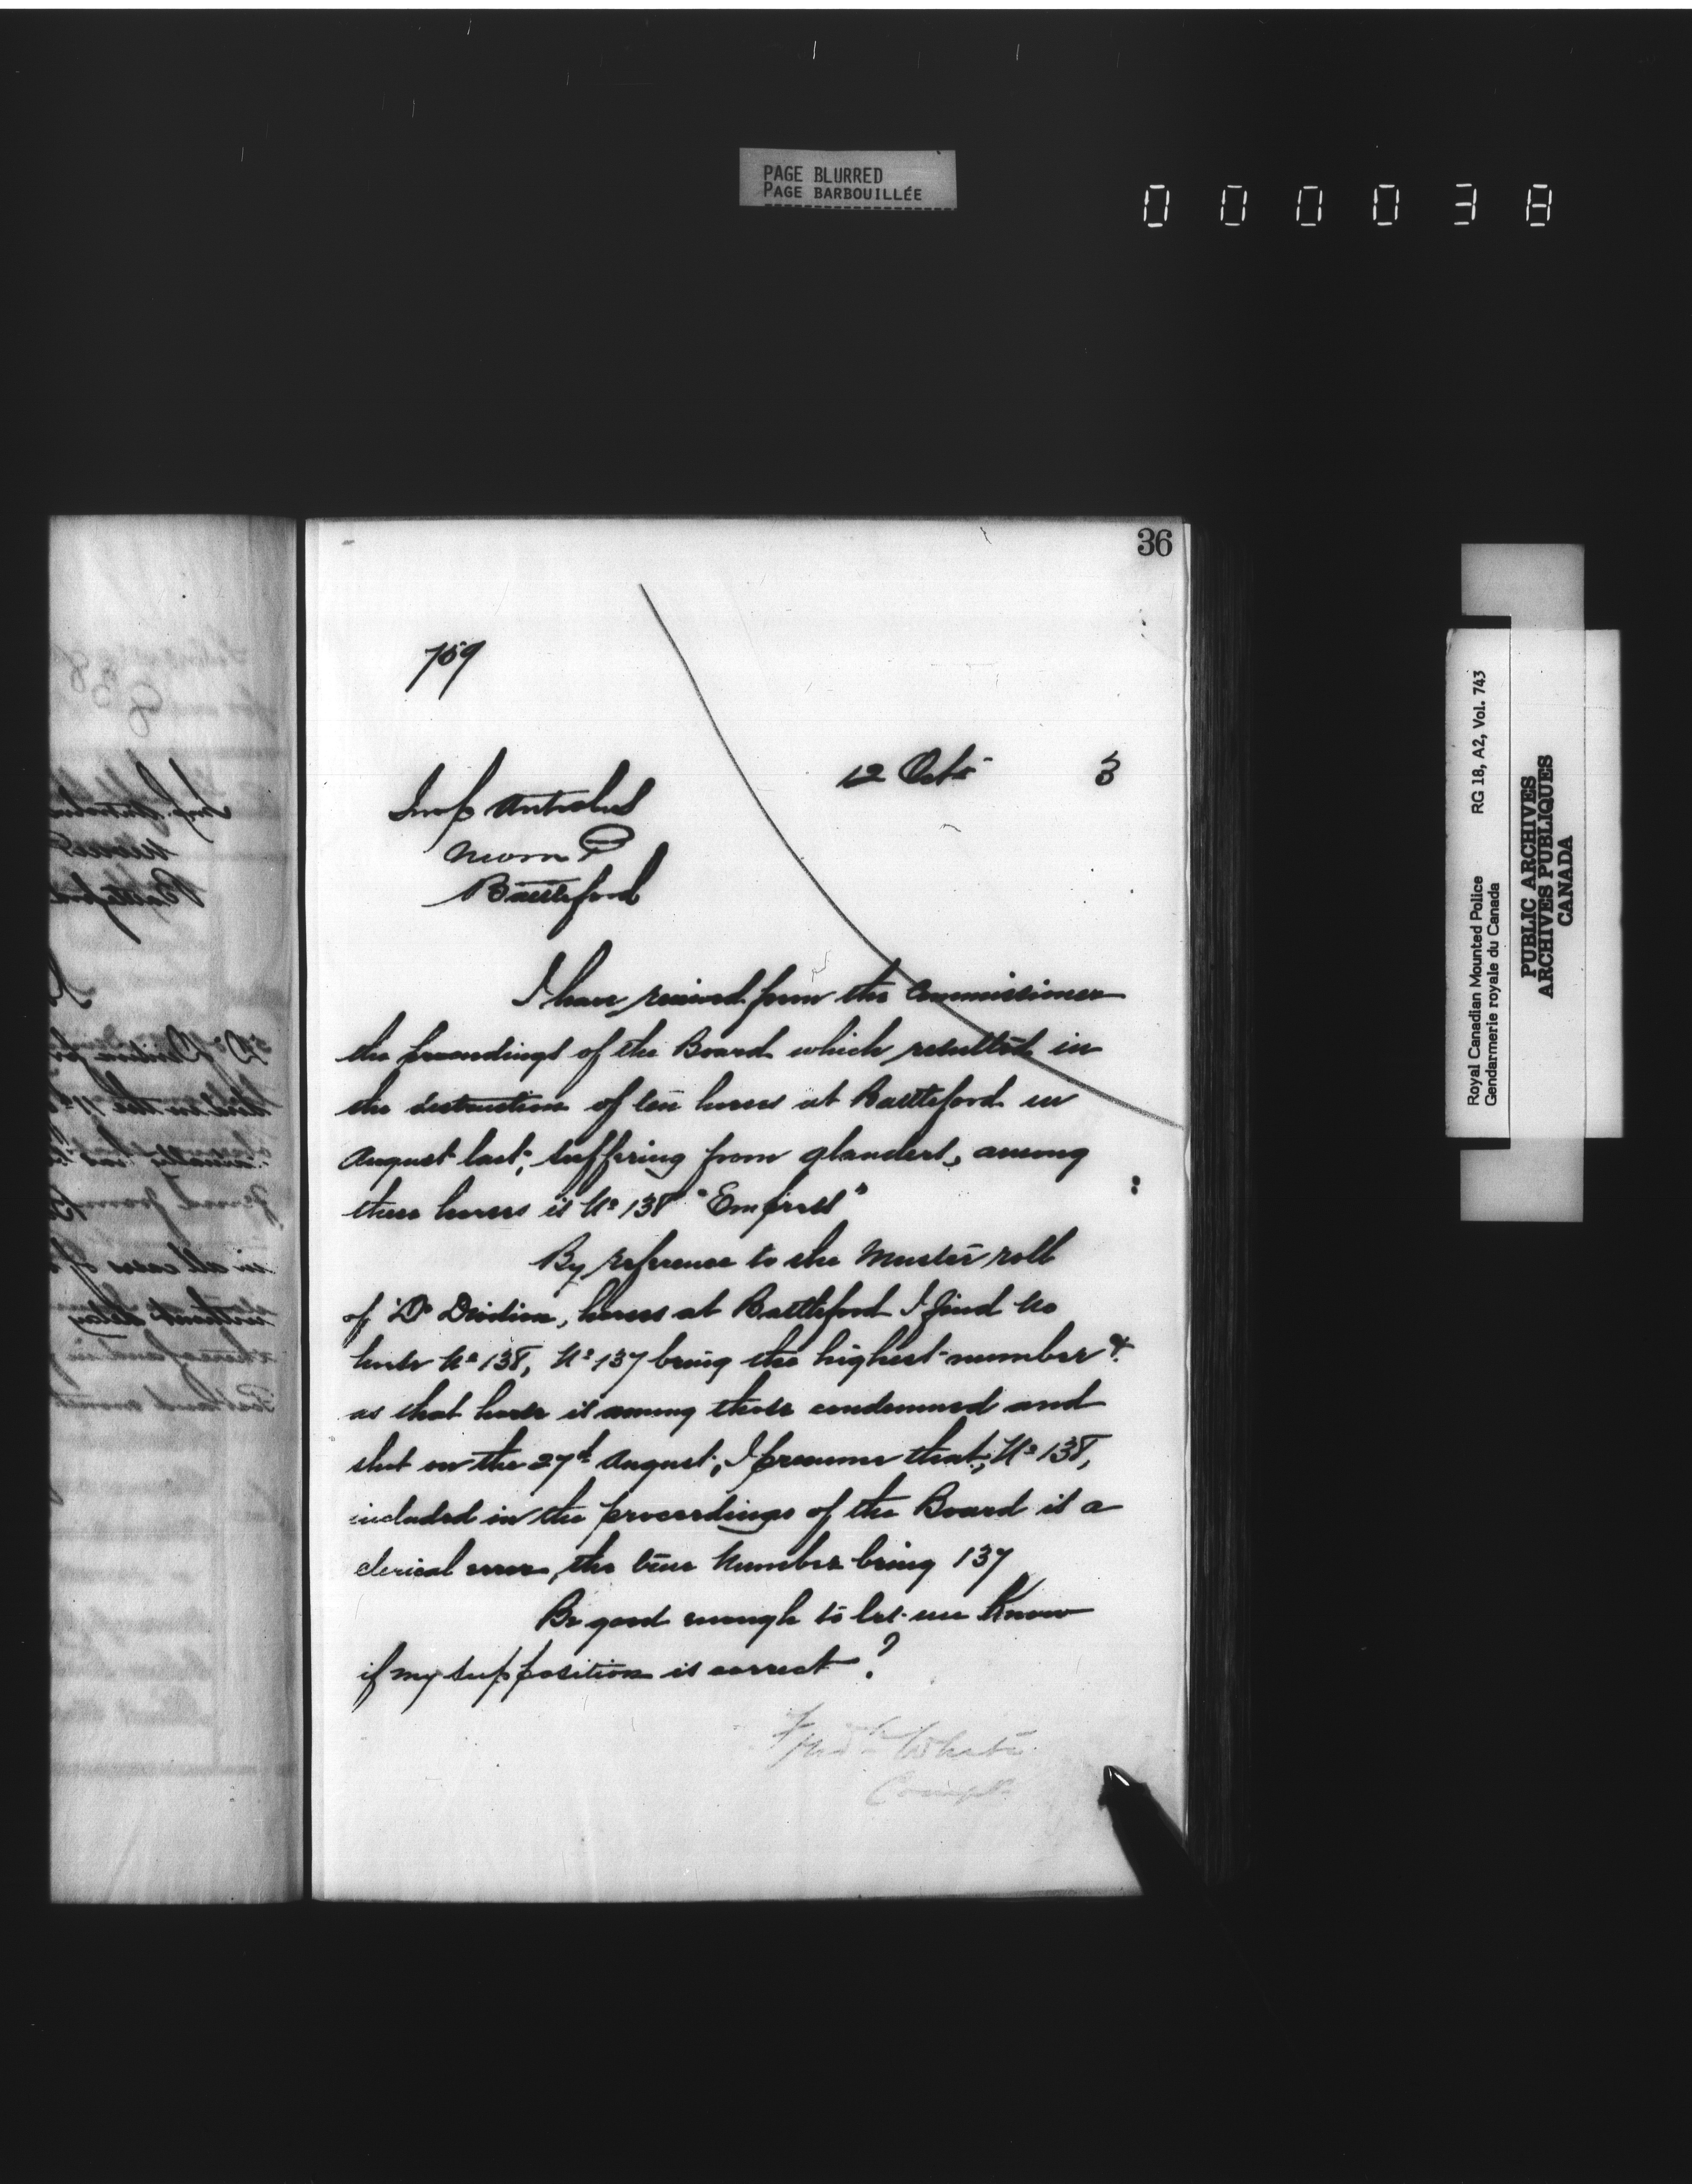 PAGE BLURRED
PAGE BARBOUILLÉE
000038
36
709
12 Octr 3
Insp Antrobus
NWMP
Battleford
I have received from the Commissioner
the proceedings of the Board which resulted in
the destruction of ten horses at Battleford in
August last, suffering from glanders, among
these horses is No 138 "Empress"
By reference to the Muster roll
of "D" Division, horses at Battleford I find no
horse No 138, No 137 being the highest number &
as that horse is among those condemned and
shot on the 27th August, I presume that, No 138,
included in the proceedings of the Board is a
clerical error, the true number being 137
Be good enough to let me Know
if my supposition is correct?
Fred White
Compt
Royal Canadian Mounted Police RG 18, A2, Vol. 743
Gendarmerie royale du Canada
PUBLIC ARCHIVES
ARCHIVES PUBLIQUES
CANADA